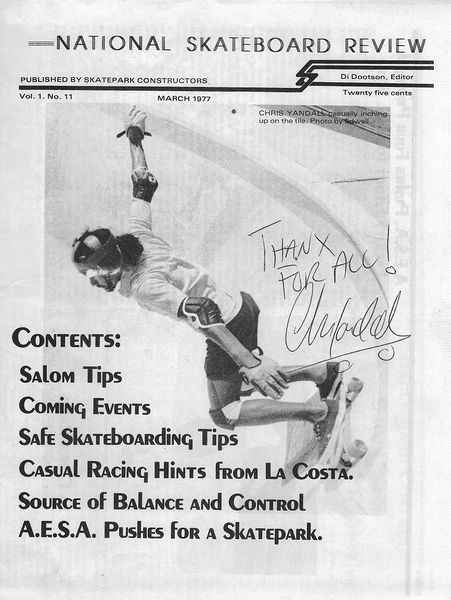 NATIONAL SKATEBOARD REVIEW
PUBLISHED BY SKATEPARK CONSTRUCTORS
Di Dootson, Editor
Vol. 1. No. 11
MARCH 1977
Twenty five cents
CHRIS YANDALL casually inching
up on the tile. Photo by Edwall.
THANX
FOR ALL!
CONTENTS:
SALOM TIPS
COMING EVENTS
SAFE SKATEBOARDING TIPS
CASUAL RACING HINTS FROM LA COSTA.
SOURCE OF BALANCE AND CONTROL
A.E.S.A. PUSHES FOR A SKATEPARK.